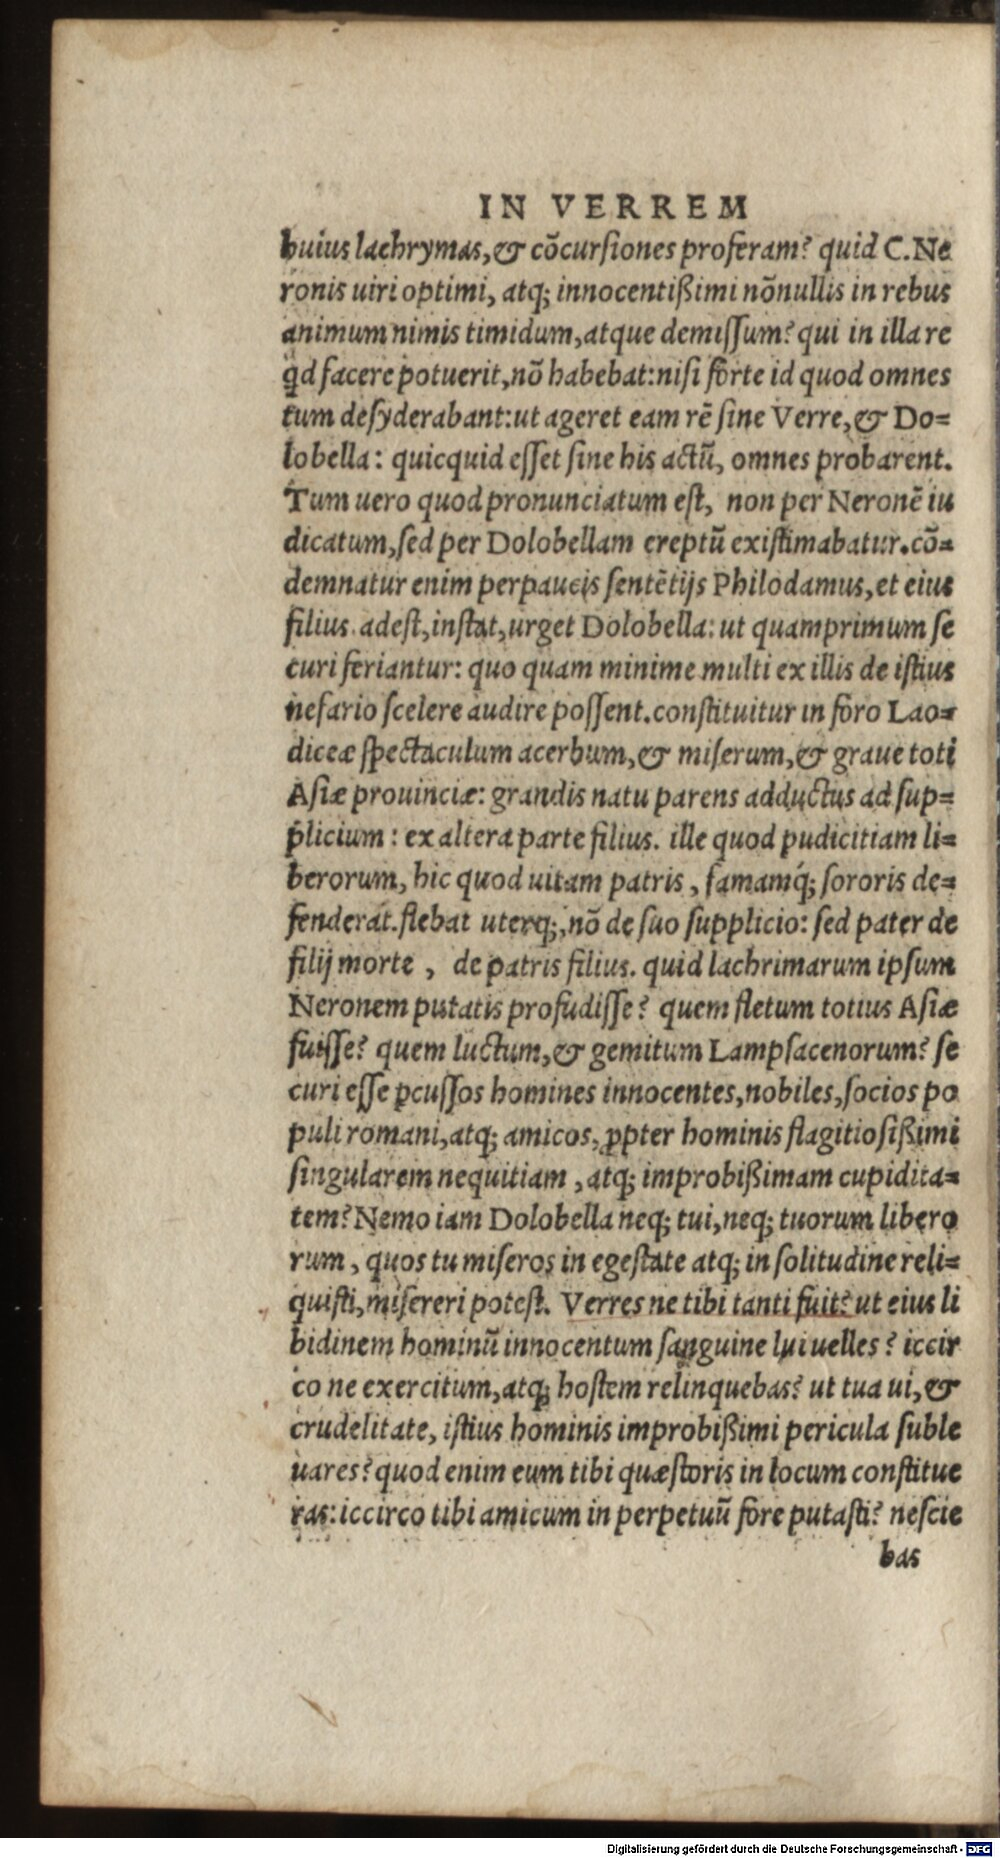 IN VERREM
huius lachrymas,& cõcursiones proferam? quid C.Ne
ronis uiri optimi, atq; innocentißimi nõnullis in rebus
animum nimis timidum,atque demissum? qui in illa re
qd facere potuerit,nõ habebat:nisi forte id quod omnes
tum desyderabant:ut ageret eam rẽ sine Verre,& Do=
lobella: quicquid esset sine his actũ, omnes probarent.
Tum uero quod pronunciatum est, non per Neronẽ iu
dicatum,sed per Dolobellam ereptũ existimabatur.cõ=
demnatur enim perpaucis sentẽtijs Philodamus,et eius
filius. adest,instat,urget Dolobella: ut quamprimum se
curi feriantur: quo quam minime multi ex illis de istius
nefario scelere audire possent.constituitur in foro Lao=
diceæ spectaculum acerbum,& miserum,& graue toti
Asiæ prouinciæ: grandis natu parens adductus ad sup=
plicium : ex altera parte filius. ille quod pudicitiam li=
berorum, hic quod uitam patris , famamq́; sororis de=
fenderat.flebat uterq;,nõ de suo supplicio: sed pater de
filij morte , de patris filius. quid lachrimarum ipsum
Neronem putatis profudisse? quem fletum totius Asiæ
fuisse? quem luctum,& gemitum Lampsacenorum? se
curi esse ꝑcussos homines innocentes,nobiles,socios po
puli romani,atq; amicos, ꝓpter hominis flagitiosißimi
singularem nequitiam , atq; improbißimam cupidita=
tem? Nemo iam Dolobella neq; tui,neq; tuorum libero
rum , quos tu miseros in egestate atq; in solitudine reli=
quisti,misereri potest. Verres ne tibi tanti fuit? ut eius li
bidinem hominũ innocentum sanguine lui uelles ? iccir
co ne exercitum,atq; hostem relinquebas? ut tua ui,&
crudelitate, istius hominis improbißimi pericula suble
uares? quod enim eum tibi quæstoris in locum constitue
ras: iccirco tibi amicum in perpetuũ fore putasti? nescie
bas
Digitalisierung gefördert durch die Deutsche Forschungsgemeinschaft - DFG